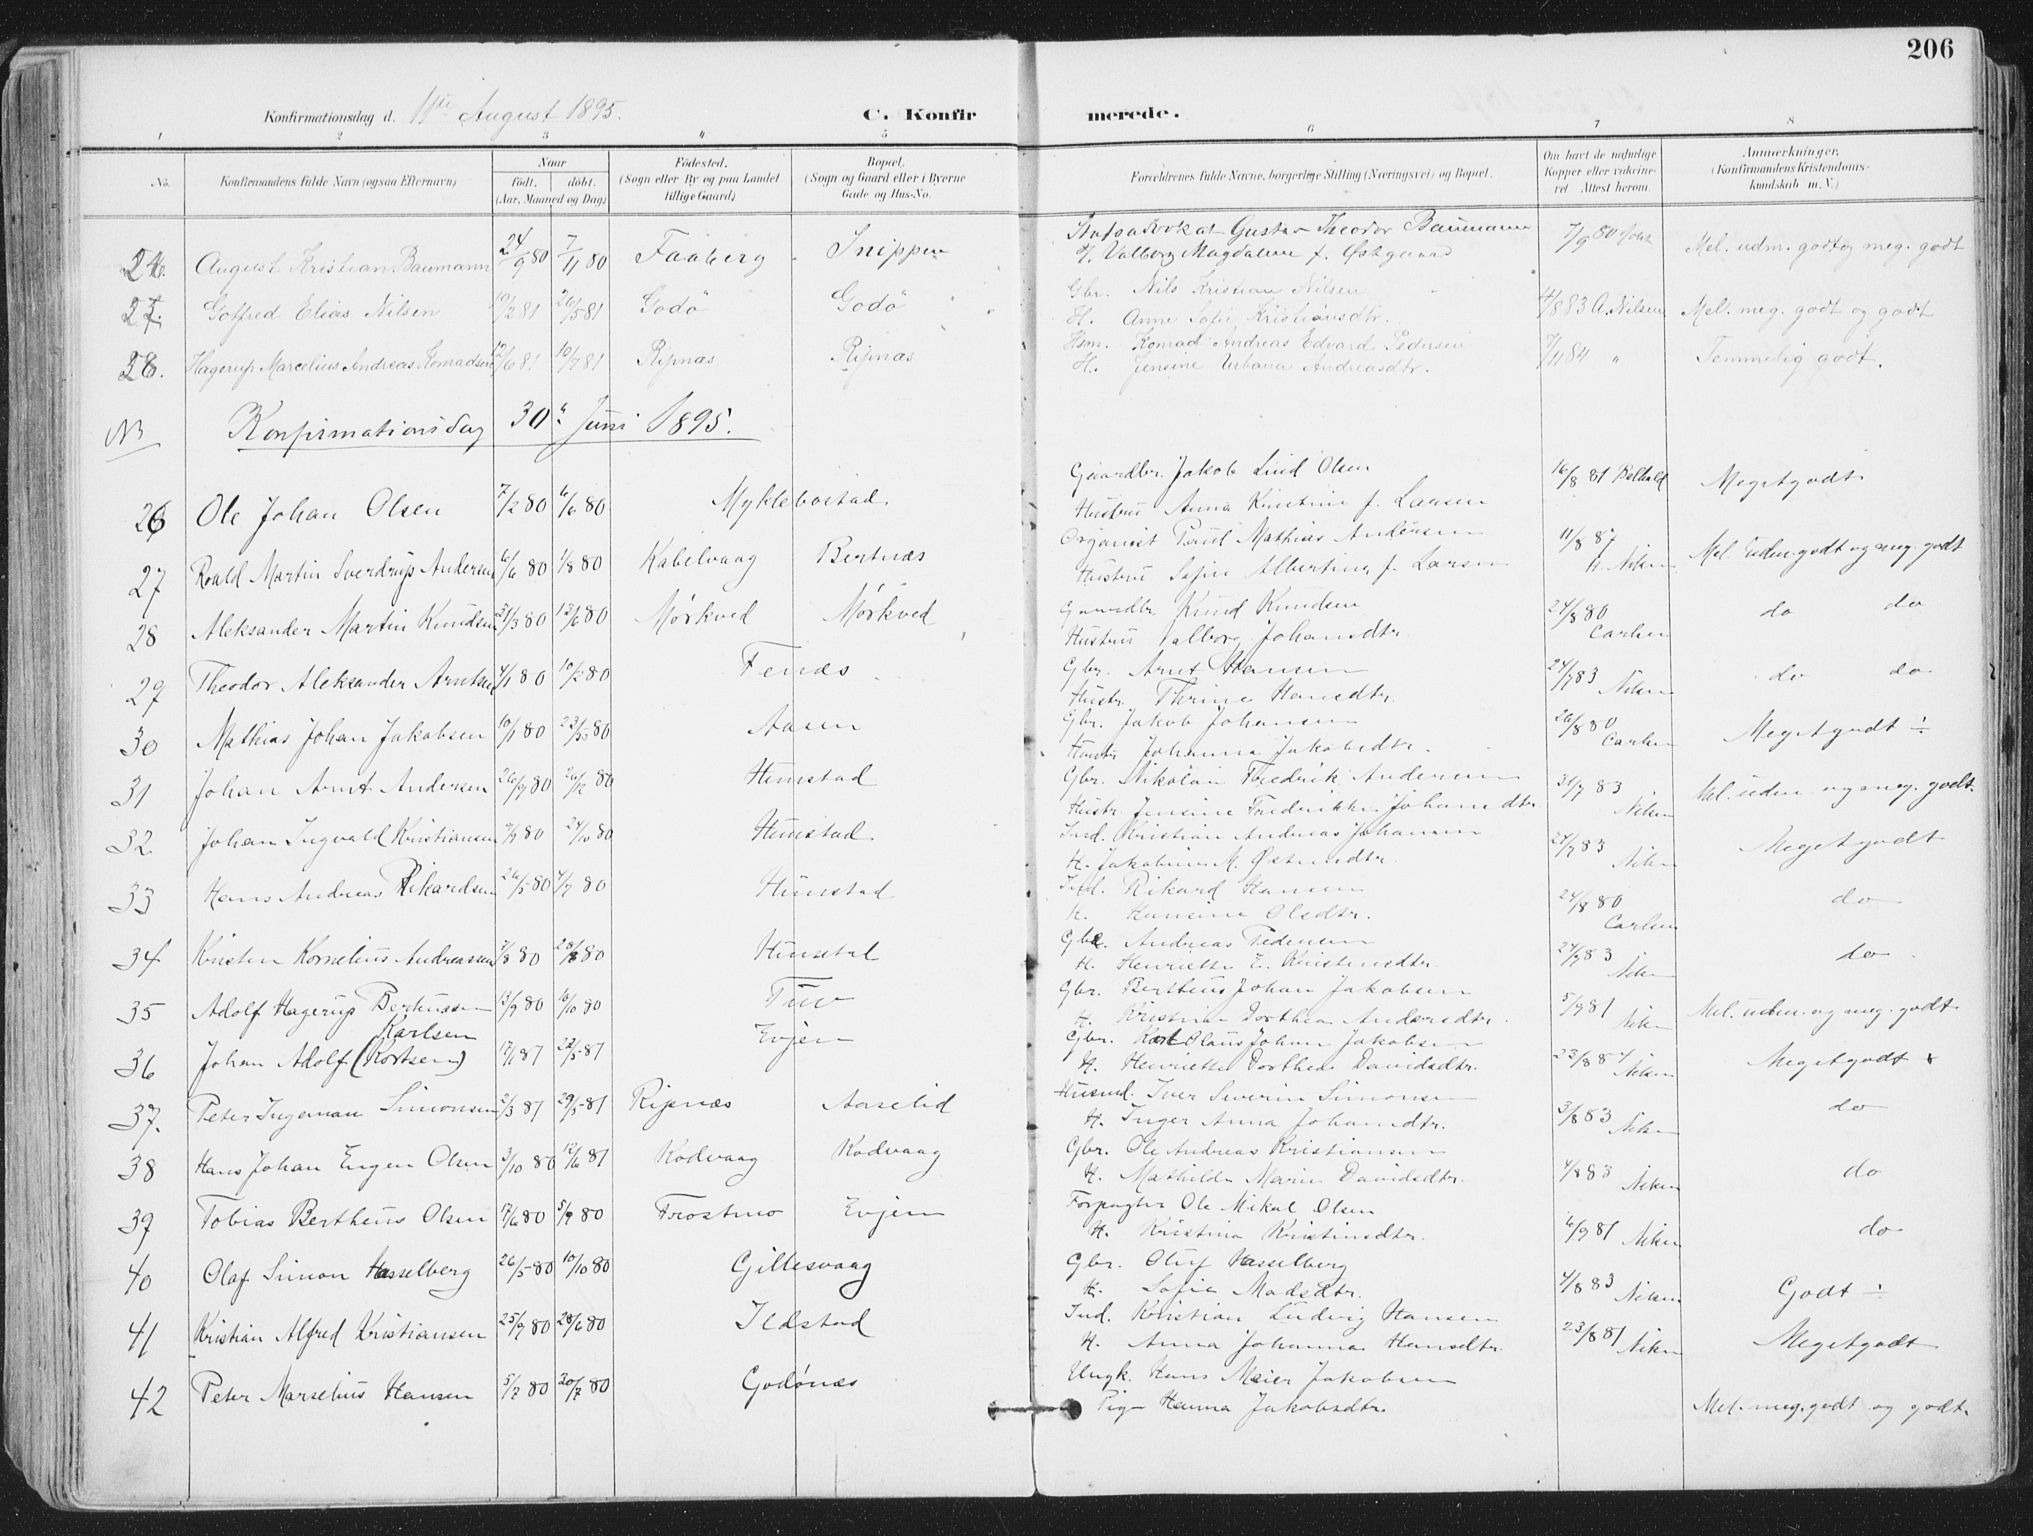 206
Konfirmationsdag d. 11te August 1895.
C. Konfir merede.
1 2 3 4 5 6 7 8
No.
Konfirmandens fulde Navn (ogsaa Efternavn)
Naar
født. døbt.
(Aar, Maaned og Dag)
Fødested.
(Sogn eller By og paa Landet
tillige Gaard)
Bopæl.
(Sogn og Gaard eller i Byerne
Gade og Hus-No.
Forældrenes fulde Navne, borgerlige Stilling (Næringsvei) og Bopæl.
Om havt de naturlige
Kopper eller vakcine-
ret. Attest herom.
Anmærkninger.
(Konfirmandens Kristendoms-
kundskab m. V.)
August Kristian Baumann 24/9 80 7/11 80 Faaberg Snippen Gustav Theodor Baumann 7/9 80 Mel. udm. godt og meg. godt
H. Valborg Magdalene f. Østgaard
27. Gotfred Elias Nilsen 10/2 81 26/5 81 Godø Godø Gbr. Nils Kristian Nilsen 4/8 83 A. Nilsen Mel. meg. godt og godt
H. Anne Sofie Kristiansdtr.
28. Hagerup Marcelius Andreas Konradsen 12/6 81 10/7 81 Ripnæs Ripnæs Hsm. Konrad Andreas Edvard Pedersen 7/11 84 " Temmelig godt.
H. Jensine Urbana Andreasdtr.
No Konfirmationsdag 30te Juni 1895.
26 Ole Johan Olsen 7/2 80 6/6 80 Myklebostad Gaardbr. Jakob Lind Olsen 16/8 81 Megetgodt
Hustru Anna Kristine f. Larsen
27 Roald Martin Sverdrup Andersen 6/6 80 1/8 80 Kabelvaag Bertnæs Organist Paul Mathias Andersen 11/8 87 Mel. uden. godt og meg. godt
Hustru Sofie Albertine f. Larsen
28 Aleksander Martin Knudsen 21/3 80 13/6 80 Mørkved Mørkved Gaardbr. Knud Knudsen 24/8 80 Carlsen do do
Hustru Valborg Johansdtr.
29 Theodor Aleksander Arntsen 4/1 80 10/2 80 Fenæs Gbr. Arnt Hansen 24/7 83 Nilsen do do
Hustr. Thrine Hansdtr.
30 Mathias Johan Jakobsen 10/1 80 Aasen Gbr. Jakob Johansen 26/8 80 Carlsen Megetgodt ÷
Hustr. Johanna Jakobsdtr.
31 Johan Arnt Andersen 26/9 80 26/12 80 Hunstad Gbr. Nikolai Fredrik Andersen 31/7 83 Nilsen Mel. uden. og meg. godt.
Hustr. Jensine Fredrikke Johansdtr
32 Johan Ingvald Kristiansen 9/9 80 24/10 80 Hunstad Ind. Kristian Andreas Johansen 24/7 83 Nilsen Megetgodt
H. Jakobine M. Østensdtr.
33 Hans Andreas Rikardsen 26/5 80 4/7 80 Hunstad Ind. Rikard Hansen 24/8 80 Carlsen do
H. Hansine Olsdtr.
34 Kristen Kornelius Andreassen 7/8 80 80 Hunstad Gbr. Andreas Pedersen 24/7 83 Nilsen do
H. Henriette E. Kristensdtr.
35 Adolf Hagerup Bertheussen 13/9 80 16/10 80 Tuv Gbr. Bertheus Johan Jakobsen 5/9 81 Nilsen Mel. uden. og meg. godt
H. Kristine Dorthea Andersdtr.
Karlsen
36 Johan Adolf (Kortsen) 17/1 81 22/5 81 Evjen Gbr. Karl Olaus Johan Jakobsen 23/8 84 Nilsen Megetgodt
H. Henriette Dorthea Davidsdtr.
37. Peter Ingeman Simonsen 2/3 81 29/5 81 Ripnæs Aaselid Husmd. Iver Severin Simonsen 3/8 83 Nilsen do
H. Inger Anna Johansdtr.
38 Hans Johan Eugen Olsen 3/10 80 12/6 81 Kodvaag Kodvaag Gbr. Ole Andreas Kristiansen 4/8 83 Nilsen do
H. Mathilde Marie Davidsdtr.
39 Tobias Bertheus Olsen 7/6 80 5/9 80 Frostmo Evjen Forpagter Ole Mikal Olsen 6/9 81 Nilsen do
H. Kristina Kristinsdtr.
40 Olaf Simon Hasselberg 26/5 80 10/10 80 Gillesvaag Gbr. Oluf Hasselberg 4/8 83 Nilsen Godt ÷
H. Sofie Madsdtr.
41 Kristian Alfred Kristiansen 80 80 Ildstad Ind. Kristian Ludvig Hansen 23/8 81 Nilsen Megetgodt
H. Anna Johanna Hansdtr.
42 Peter Marselius Hansen 5/7 80 20/7 80 Godønæs Ungk. Hans Meier Jakobsen
Pige Hanna Jakobsdtr. Mel. meg. godt og godt.